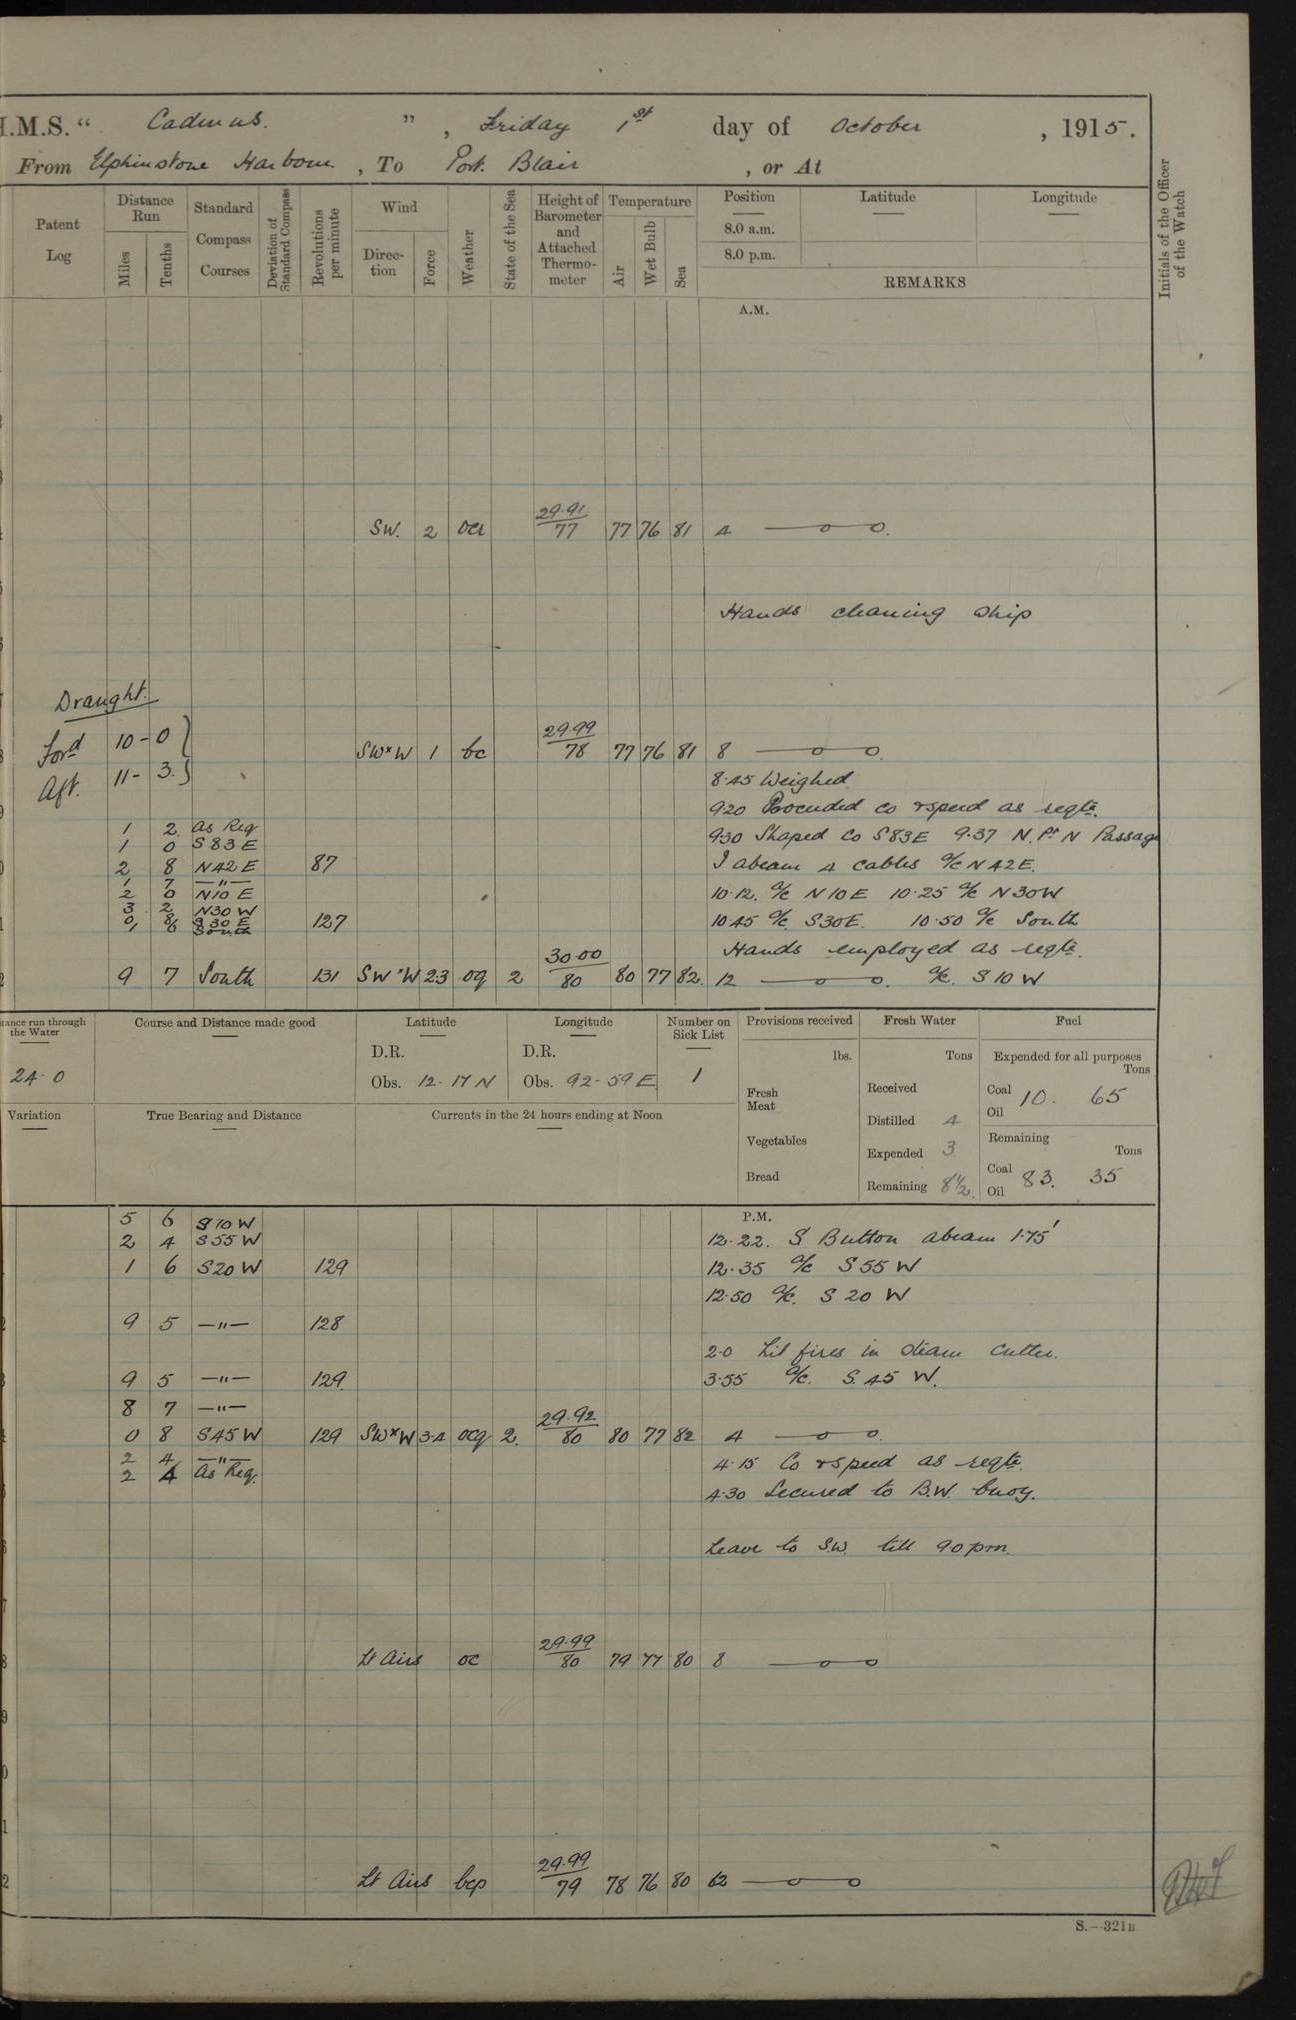 H.M.S. " Cadmus. " , Friday 1st day of October , 1915.
From Elphinstone Harbour , To Port Blair , or At
Patent Log
Distance Run
Miles
Tenths
Standard Compass Courses
Deviation of Standard Compass
Revolutions per minute
Wind
Direction
Force
Weather
State of the Sea
Height of Barometer and Attached Thermometer
Temperature
Air
Wet Bulb
Sea
Position
8.0 a.m.
8.0 p.m.
Latitude
Longitude
REMARKS
Initials of the Officer of the Watch
A.M.
SW. 2 29.91/77 77 76 81 4
Hands cleaning Ship
Draught.
Ford 10-0
Aft. 11-3.
SW×W 1 bc 29.99/78 77 76 81 8
8.45 Weighed.
9.20 Proceeded Co & speed as reqte.
1 2 As Req 9.30 Shaped Co S83E 9.37 N. Pt N Passage
1 0 S83E
2 8 N42E 87 I abeam 4 cables a/c N42E.
1 7 —"—
2 0 N10E 10.12. a/c N10E 10.25 a/c N30W
3 2 N30W
0 8 S30E 127 10.45 a/c S30E. 10.50 a/c South
1 6 South
Hands employed as reqte.
9 7 South 131 SW×W 2.3 og 2 30.00/80 80 77 82 12 a/c. S10W
Distance run through the Water
24.0
Course and Distance made good
Latitude
D.R.
Obs. 12-17N
Longitude
D.R.
Obs. 92-59E
Number on Sick List
1
Provisions received
lbs.
Fresh Meat
Vegetables
Bread
Fresh Water
Tons
Received
Distilled 4
Expended 3
Remaining 81/2
Fuel
Expended for all purposes
Tons
Coal 10. 65
Oil
Remaining
Tons
Coal 83. 35
Oil
Variation
True Bearing and Distance
Currents in the 24 hours ending at Noon
P.M.
5 6 S10W
2 4 S55W 12.22. S Button abeam 1.75'
1 6 S20W 129 12.35 a/c S55W
12.50 a/c. S20W
9 5 —"— 128
2.0 Lit fires in steam cutter.
9 5 —"— 129 3.55 a/c. S.45W.
8 7 —"—
0 8 S45W 129 SW×W 3.4 ocq 2. 29.92/80 80 77 82 4
2 4 —"— 4.15 Co & speed as reqte.
2 4 As Req.
4.30 Secured to B.W. buoy.
Leave to S.W. till 9.0 pm.
Lt Airs oc 29.99/80 79 77 80 8
Lt Airs bcp 29.99/79 78 76 80 12
S.—321B